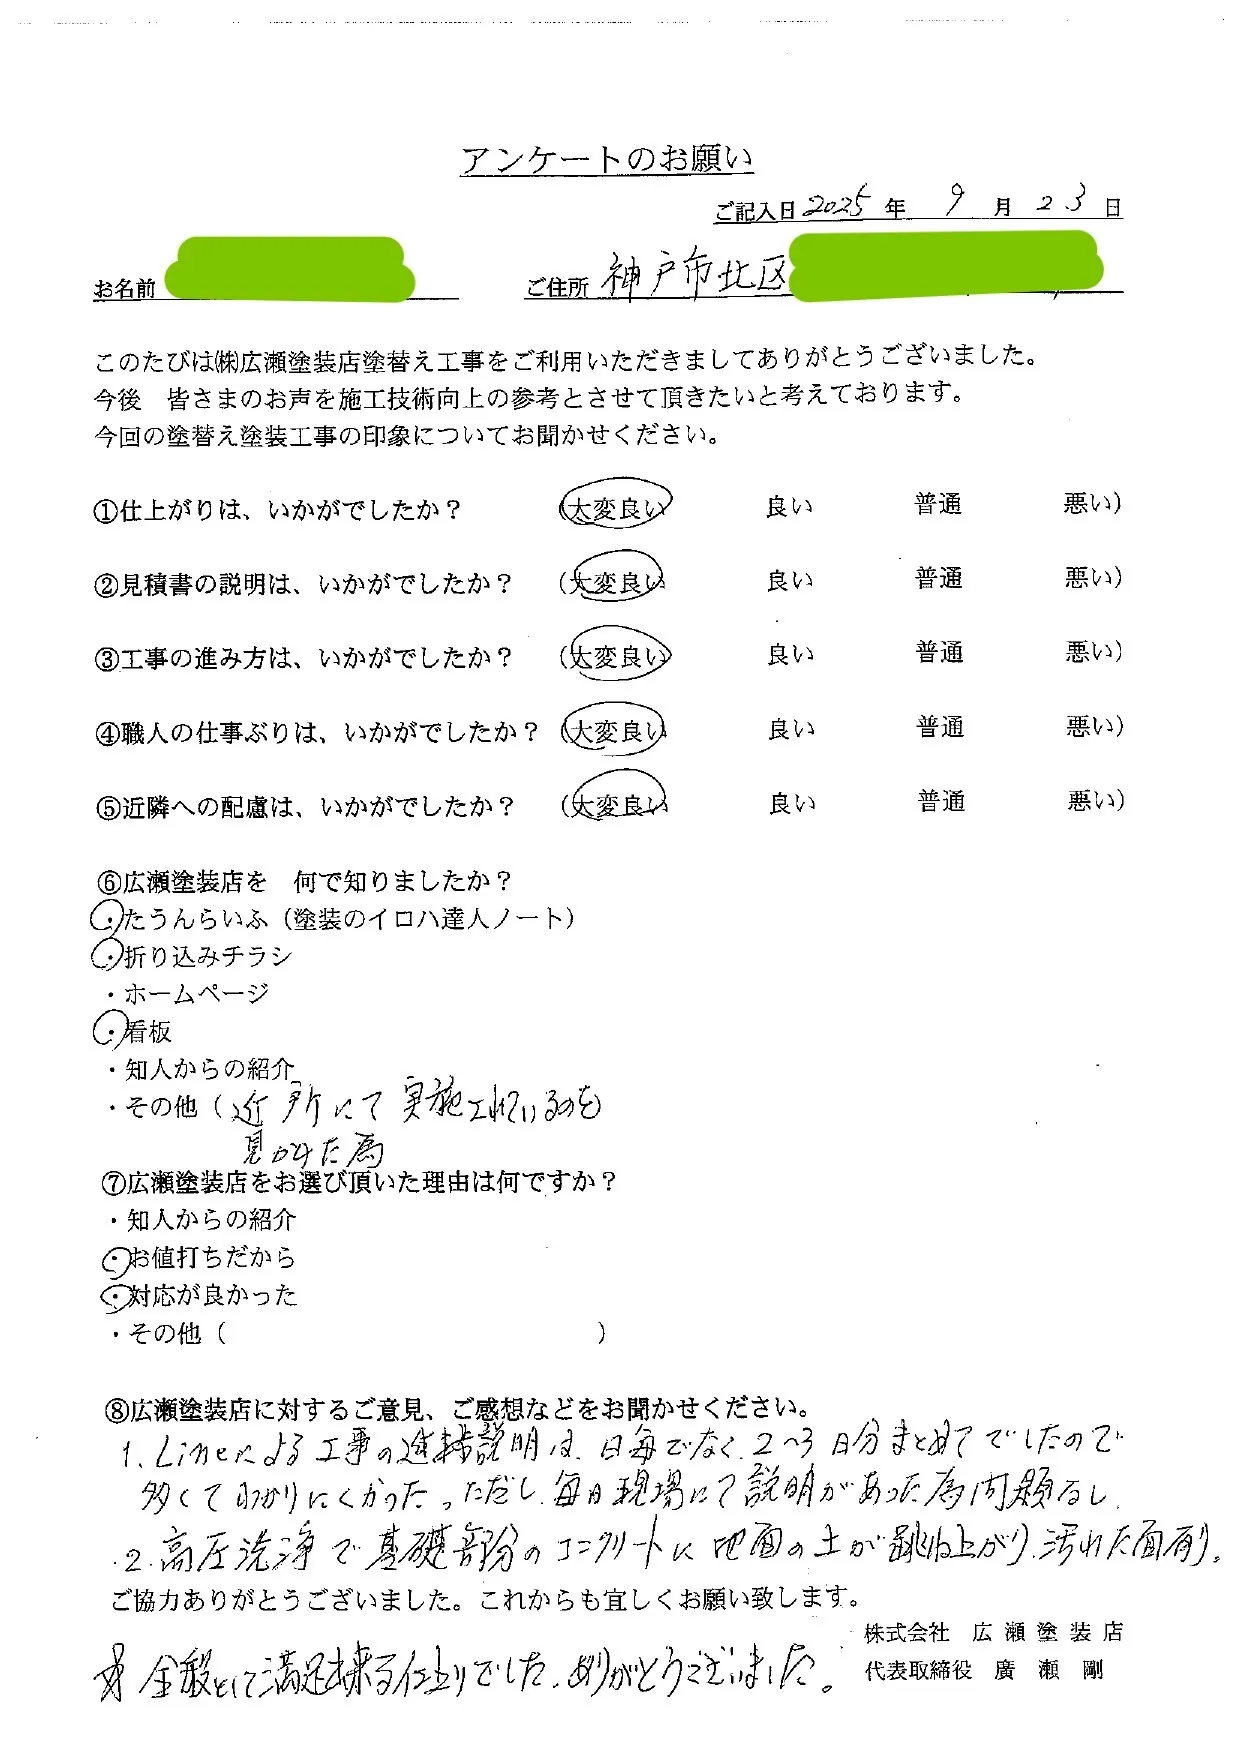 アンケートのお願い
ご記入日2025年 9月 23日
お名前 ご住所 神戸市北区
このたびは㈱広瀬塗装店塗替え工事をご利用いただきましてありがとうございました。
今後 皆さまのお声を施工技術向上の参考とさせて頂きたいと考えております。
今回の塗替え塗装工事の印象についてお聞かせください。
①仕上がりは、いかがでしたか？ (大変良い 良い 普通 悪い)
②見積書の説明は、いかがでしたか？ (大変良い 良い 普通 悪い)
③工事の進み方は、いかがでしたか？ (大変良い 良い 普通 悪い)
④職人の仕事ぶりは、いかがでしたか？ (大変良い 良い 普通 悪い)
⑤近隣への配慮は、いかがでしたか？ (大変良い 良い 普通 悪い)
⑥広瀬塗装店を 何で知りましたか？
・たうんらいふ（塗装のイロハ達人ノート）
・折り込みチラシ
・ホームページ
・看板
・知人からの紹介
・その他（近所にて実施されているのを
見かけた為
⑦広瀬塗装店をお選び頂いた理由は何ですか？
・知人からの紹介
・お値打ちだから
・対応が良かった
・その他（ ）
⑧広瀬塗装店に対するご意見、ご感想などをお聞かせください。
1. Lineによる工事の進捗説明は、日毎でなく、2〜3日分まとめてでしたので
多くてわかりにくかった。ただし、毎日現場にて説明があった為問題なし.
2. 高圧洗浄で基礎部分のコンクリートに地面の土が跳ね上がり、汚れた面有り。
ご協力ありがとうございました。これからも宜しくお願い致します。
株式会社 広瀬塗装店
全般として満足出来る仕上りでした。ありがとうございました。
代表取締役 廣瀬 剛